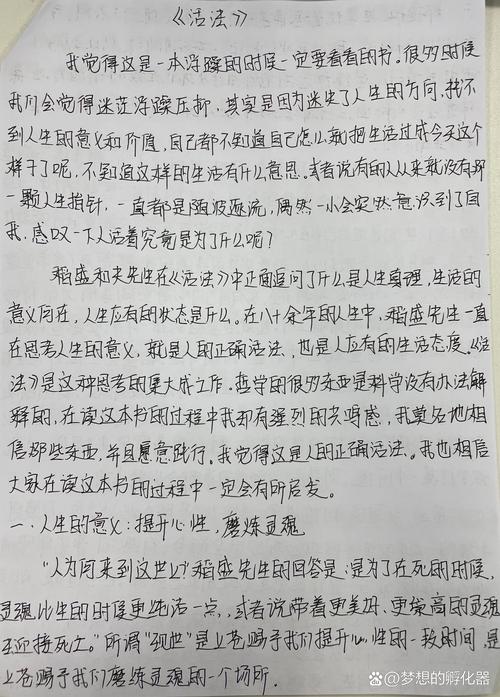 《活法》
我觉得这是一本浮躁的时候一定要看看的书。很多时候
我们会觉得迷茫浮躁压抑，其实是因为迷失了人生的方向，找不
到人生的意义和价值，自己都不知道自己怎么就把生活过成今天这个
样子了呢，不知道这样的生活有什么意思。或者说有的人从来就没有那
一颗人生指针，一直都是随波逐流，偶然一小会突然意识到了自
我，感叹一下人活着究竟是为了什么呢？
稻盛和夫先生在《活法》中正面追问了什么是人生真理，生活的
意义何在，人生应有的状态是什么。在八十余年的人生中，稻盛先生一直
在思考人生的意义，就是人的正确活法，也是人应有的生活态度。《活
法》是这种思考的集大成工作。哲学的很多东西是科学没有办法解
释的，在读这本书的过程中我却有强烈的共鸣感，我莫名地相
信那些东西，并且愿意践行。我觉得这是人的正确活法。我也相信
大家在读这本书的过程中一定会有所启发。
一、人生的意义：提升心性，磨炼灵魂
"人为何来到这世上？"稻盛先生的回答是："是为了在死的时候，
灵魂比生的时候更纯洁一点，或者说带着更美好、更崇高的灵魂
去迎接死亡。"所谓"现世"是上苍赐予我们提升心性的一段时间，是
上苍赐予我们磨炼灵魂的一个场所。
@梦想的孵化器